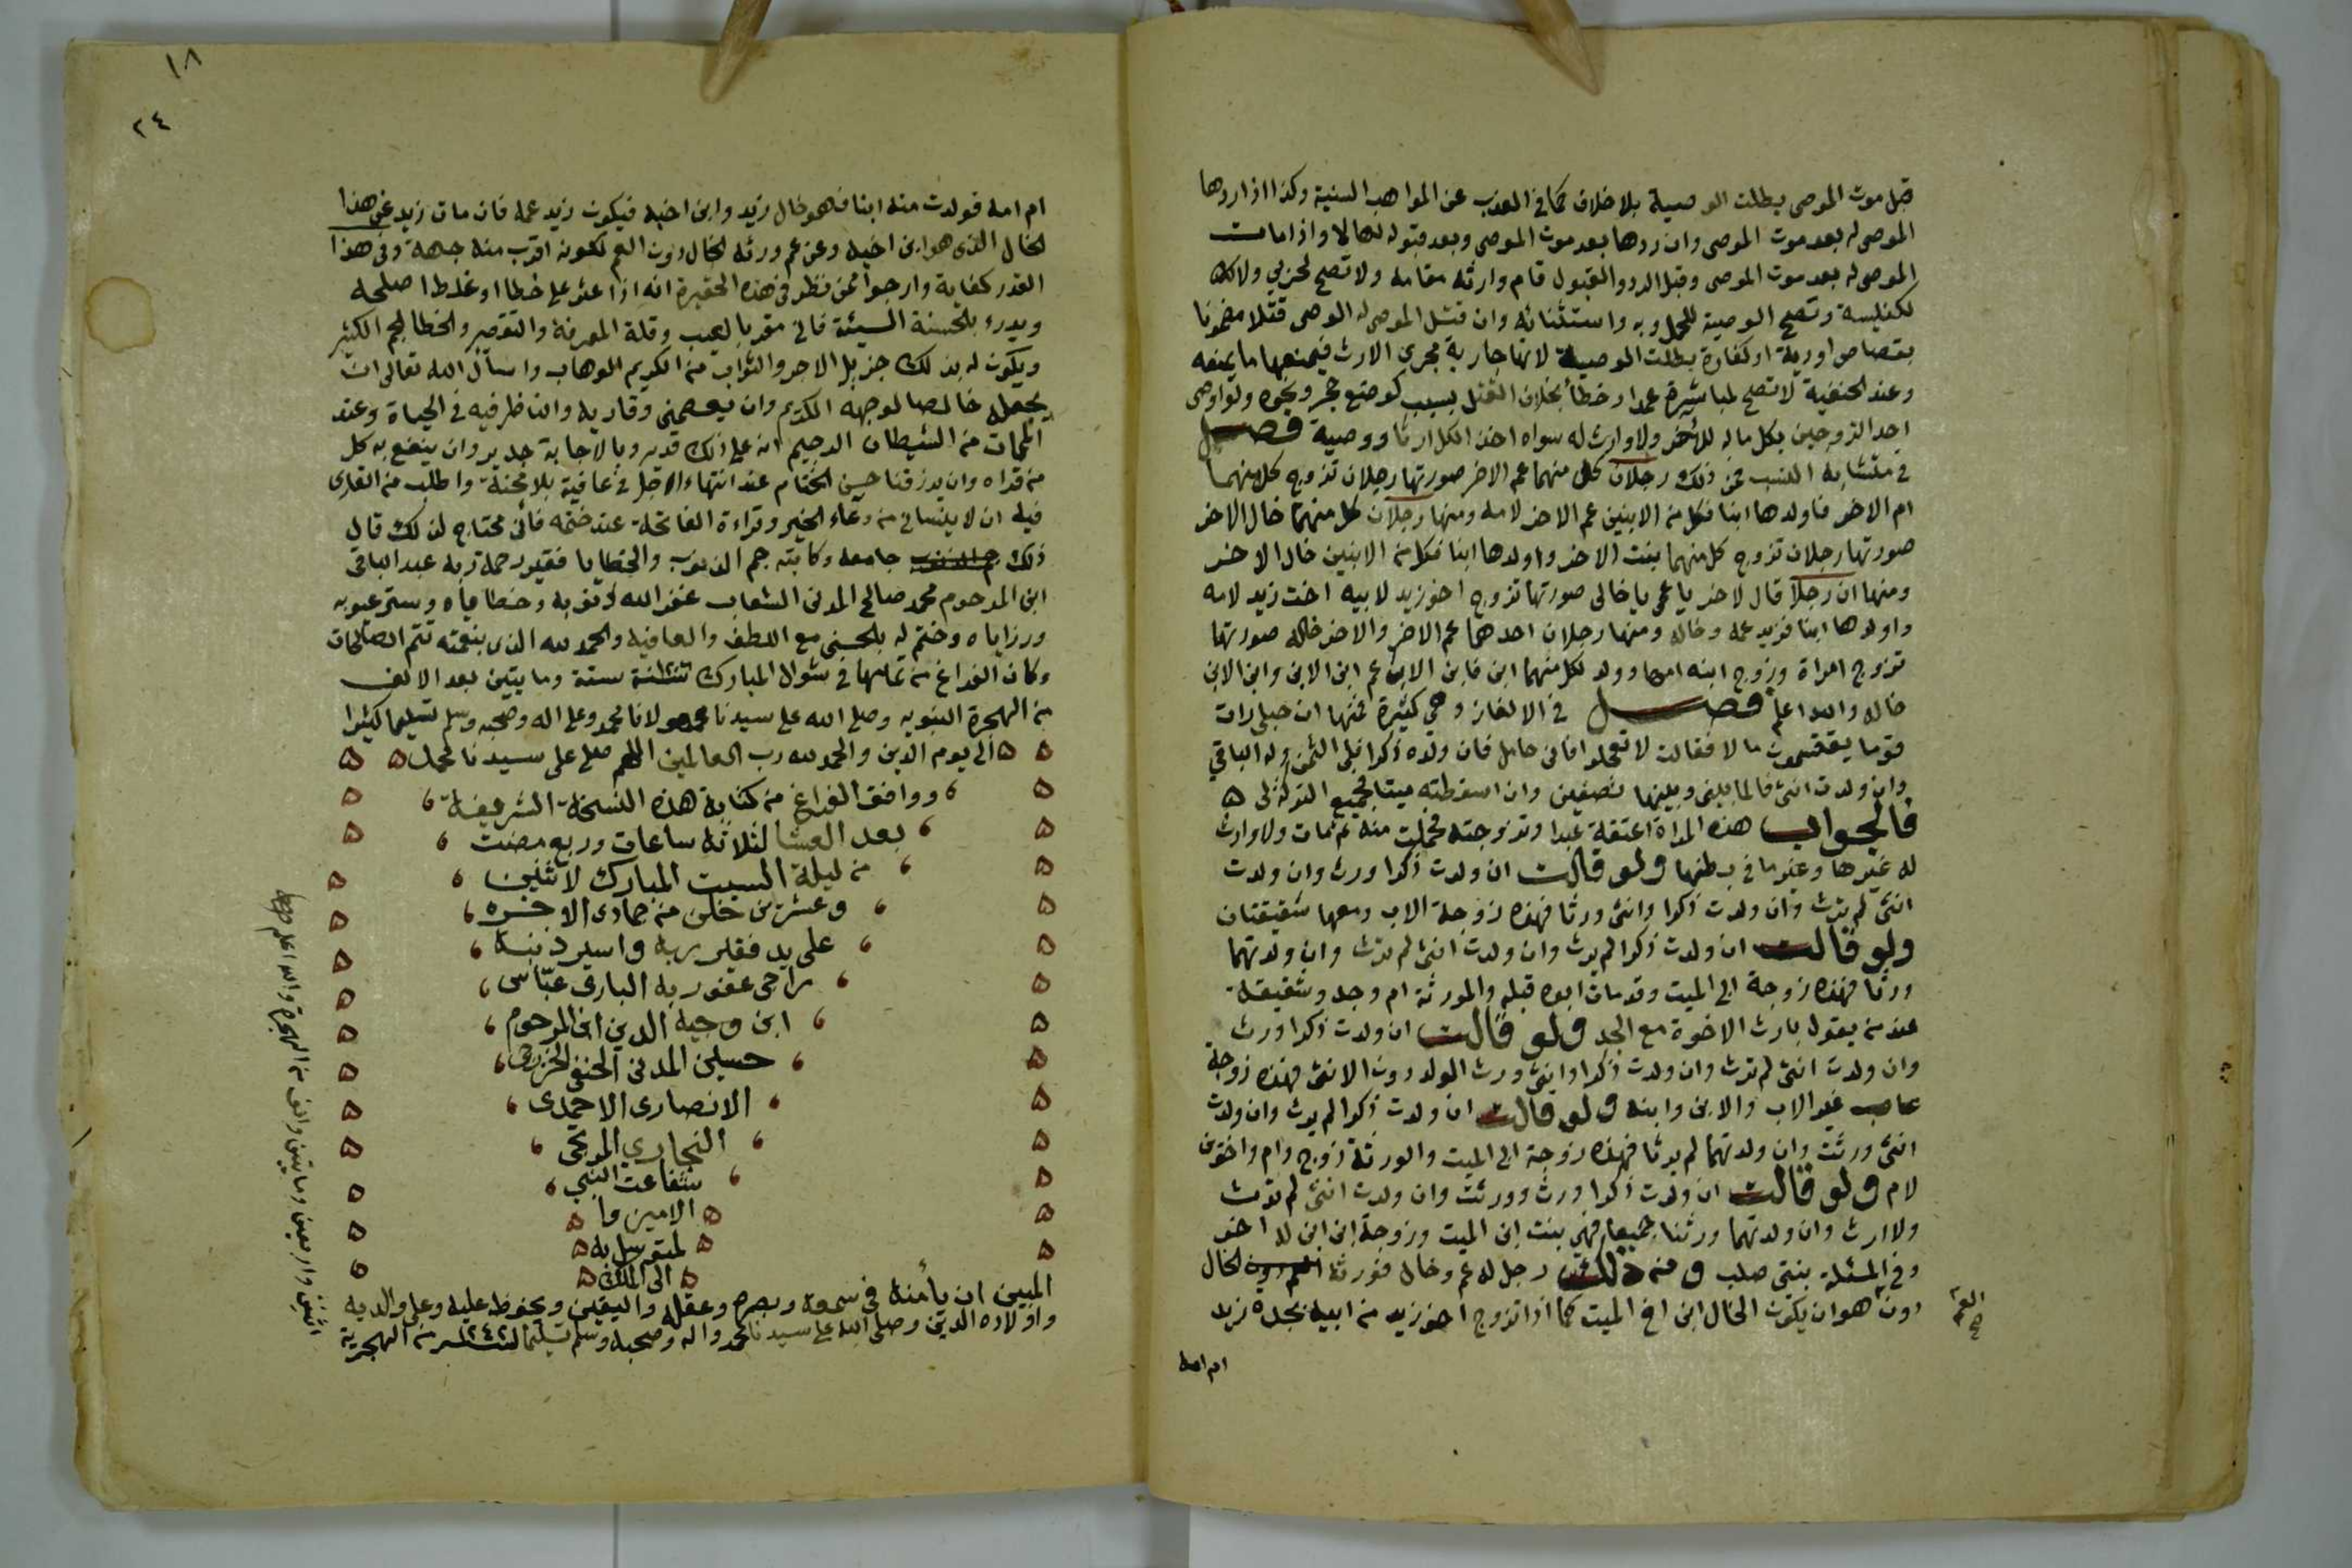 قبل موت الموصى بطلت الوصية بلا خلاف كما فى العذب عن المواهب السنية وكذا اذا ردها
الموصى له بعد موت الموصى وان ردها بعد موت الموصى وبعد قبوله لها لا واذا مات
الموصى له بعد موت الموصى وقبل الرد والقبول قام وارثه مقامه ولا تصح لحربي ولا لك
لكنيسة وتصح الوصية للحمل وبه واستثنائه وان قتل الموصى له الوصى قتلا مضمونا
بقصاص او دية او كفارة بطلت الوصية لانها جارية مجرى الارث فيمنعها ما يمنعه
وعند الحنفية لا تصح لمباشرة عمدا وخطأ بخلاف القتل بسبب كوضع حجر ونحوه ولو اوصى
احد الزوجين بكل ماله للأخر ولا وارث له سواه اخذ الكل ارثا ووصية فصل
فى متشابه النسب فمن ذلك رجلان كل منهما عم الاخر صورتها رجلان تزوج كل منهما
ام الاخر فاولدها ابنا فكل من الابنين عم الاخر لامه ومنها رجلان كل منهما خال الاخر
صورتها رجلان تزوج كل منهما بنت الاخر واولدها ابنا فكل من الابنين خال الاخر
ومنها ان رجلا قال لاخر يا عمى يا خالى صورتها تزوج اخو زيد لابيه اخت زيد لامه
واولدها ابنا فزيد عمه وخاله ومنها رجلان احدهما عم الاخر والاخر خاله صورتها
تزوج امراة وزوج ابنه امها وولد لكل منهما ابن فابن الاب عم ابن الابن وابن الابن
خاله والله اعلم فصل فى الالغاز وهى كثيرة فمنها ان حبلى رات
قوما يقتسمون مالا فقالت لا تعجلوا فانى حامل فان ولده ذكرا فلى الثمن وله الباقي
وان ولدت انثى فالمال بينى وبينها نصفين وان اسقطته ميتا فجميع التركة لى ه
فالجواب هذه المراة اعتقت عبدا وتزوجته فحملت منه ثم مات ولا وارث
له غيرها وغير ما فى بطنها ولو قالت ان ولدت ذكرا ورث وان ولدت
انثى لم ترث وان ولدت ذكرا وانثى ورثا فهذه زوجة الاب ومعها شقيقتان
ولو قالت ان ولدت ذكرا لم يرث وان ولدت انثى لم ترث وان ولدتهما
ورثا فهذه زوجة ابى الميت وقد مات ابوه قبله والورثة ام وجد وشقيقة
عند من يقول بارث الاخوة مع الجد ولو قالت ان ولدت ذكرا ورث
وان ولدت انثى لم ترث وان ولدت ذكرا وانثى ورث الولد دون الانثى فهذه زوجة
عاصب غير الاب والابن وابنه ولو قالت ان ولدت ذكرا لم يرث وان ولدت
انثى ورثت وان ولدتهما لم يرثا فهذه زوجة ابى الميت والورثة زوج وام واختين
لام ولو قالت ان ولدت ذكرا ورث وورثت وان ولدت انثى لم ترث
ولا ارث وان ولدتهما ورثنا جميعا فهى بنت ابن الميت وزوجة ابن ابن له اخر
وفى المسئلة بنتى صلب ومن ذلك رجل له عم وخال فورثه الخال
دون هو ان يكون الخال ابن اخ الميت كما اذا تزوج اخو زيد من ابيه بجدة زيد
العم
صح
ام امه
١٨
٢٤
ام امه فولدت منه ابنا فهو خال زيد وابن اخيه فيكون زيد عمه فان مات زيد عن هذا
الخال الذى هو ابن اخيه وعن عم ورثه الخال دون العم لكونه اقرب منه جهة وفى هذا
القدر كفاية وارجوا ممن نظر فى هذه الحقيرة انه اذا عثر على خطا او غلط اصلحه
ويدرء بالحسنة السيئة فانى مقر بالعيب وقلة المعرفة والتقصير والخطا الجم الكثير
ويكون له بذلك جزيل الاجر والثواب من الكريم الوهاب واسأل الله تعالى ان
يجعله خالصا لوجهه الكريم وان يعصمنى وقاريه والناظر فيه فى الحياة وعند
الممات من الشيطان الرجيم انه على ذلك قدير وبالاجابة جدير وان ينفع به كل
من قراه وان يرزقنا حسن الختام عند انتهاء الاجل فى عافية بلا محنة واطلب من القارى
فيه ان لا ينسانى من دعاء الخير وقراءة الفاتحة عند ختمه فانى محتاج لذلك قال
ذلك جامعه وكاتبه جم الذنوب والخطايا فقير رحمة ربه عبد الباقى
ابن المرحوم محمد صالح المدنى الشعاب غفر الله ذنوبه وخطاياه وستر عيوبه
ورزاياه وختم له بالحسنى مع اللطف والعافية والحمد لله الذى بنعمته تتم الصالحات
وكان الفراغ من تمامها فى شوال المبارك سنة ستة ومايتين بعد الالف
من الهجرة النبوية وصلى الله على سيدنا ومولانا محمد وعلى اله وصحبه وسلم تسليما كثيرا
الى يوم الدين والحمد لله رب العالمين اللهم صلى على سيدنا محمد
ووافق الفراغ من كتابة هذه النسخة الشريفة
بعد العشا لثلاثة ساعات وربع مضت
من ليلة السبت المبارك لاثنين
وعشرين خلت من جمادى الاخره
على يد فقير ربه واسير ذنبه
راجى عفو ربه البارى عباس
ابن وجيه الدين ابن المرحوم
حسين المدنى الحنفى الخزرجى
الانصارى الاحمدى
النجارى المرتجى
شفاعت النبى
الامين وا
لمتوسل به
الى الملك
المبين ان يأمنه فى سمعه وبصره وعقله واليقين ويحفظ عليه وعلى والديه
واولاده الدين وصلى الله على سيدنا محمد واله وصحبه وسلم تسليما ١٢٤٢ من الهجرية
اثنين واربعين ومايتين والف من الهجرة والله اعلم